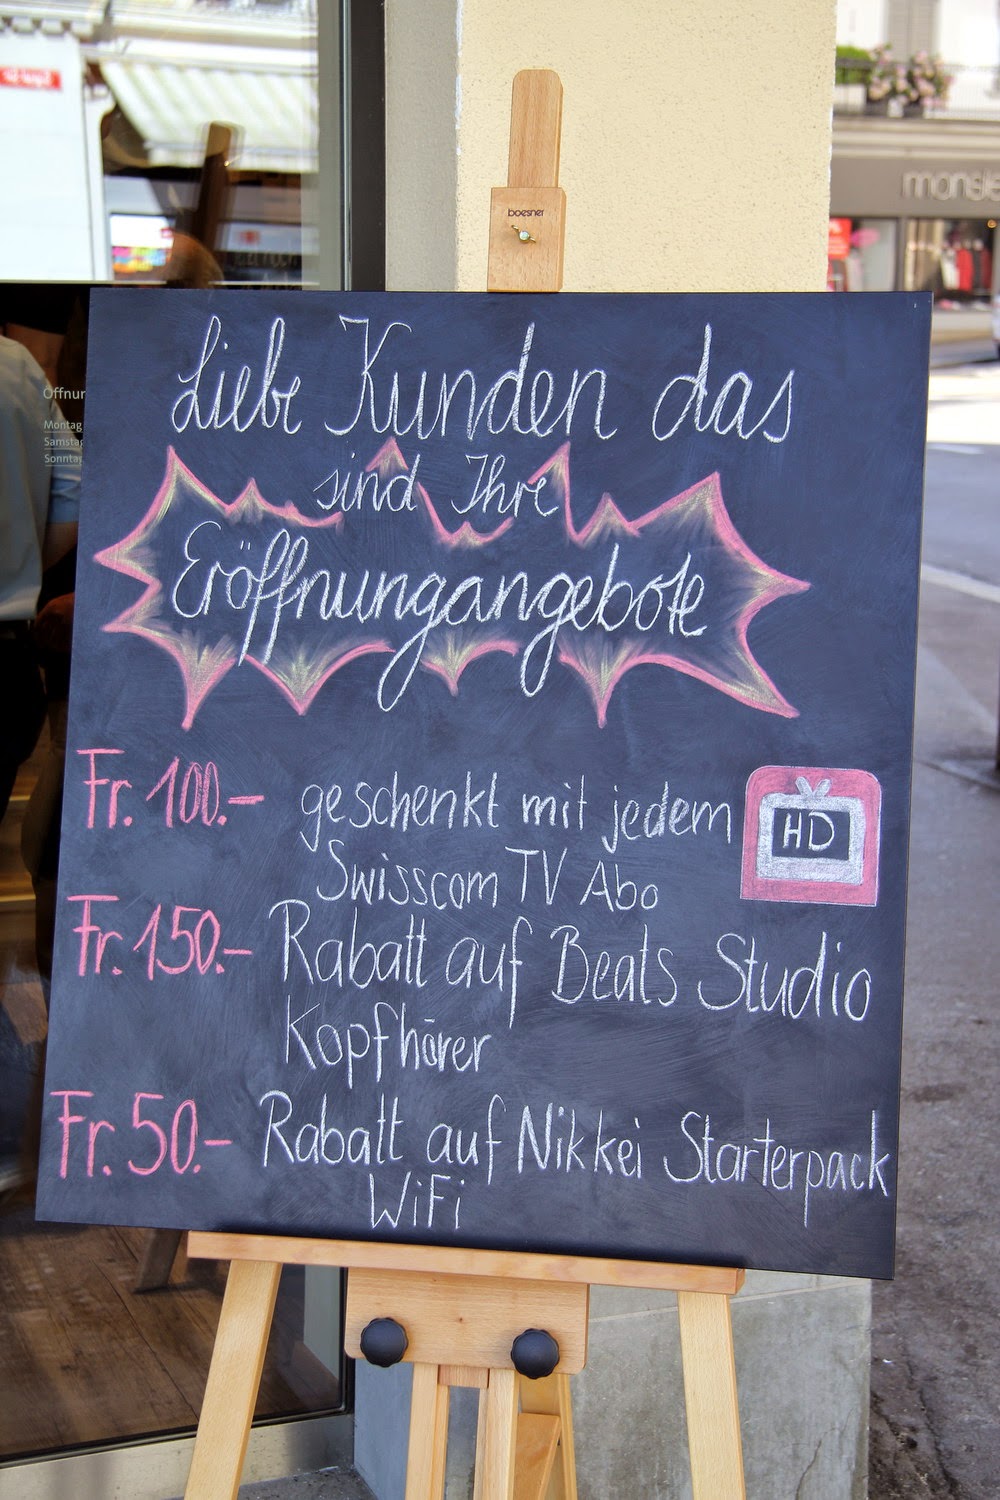 boesner
Liebe Kunden das
sind Ihre
Eröffnungangebote
Fr. 100.- geschenkt mit jedem
HD
Swisscom TV Abo
Fr. 150.- Rabatt auf Beats Studio
Kopfhörer
Fr. 50.- Rabatt auf Nikkei Starterpack
WiFi
Öffnun
Montag
Samstag
Sonntag